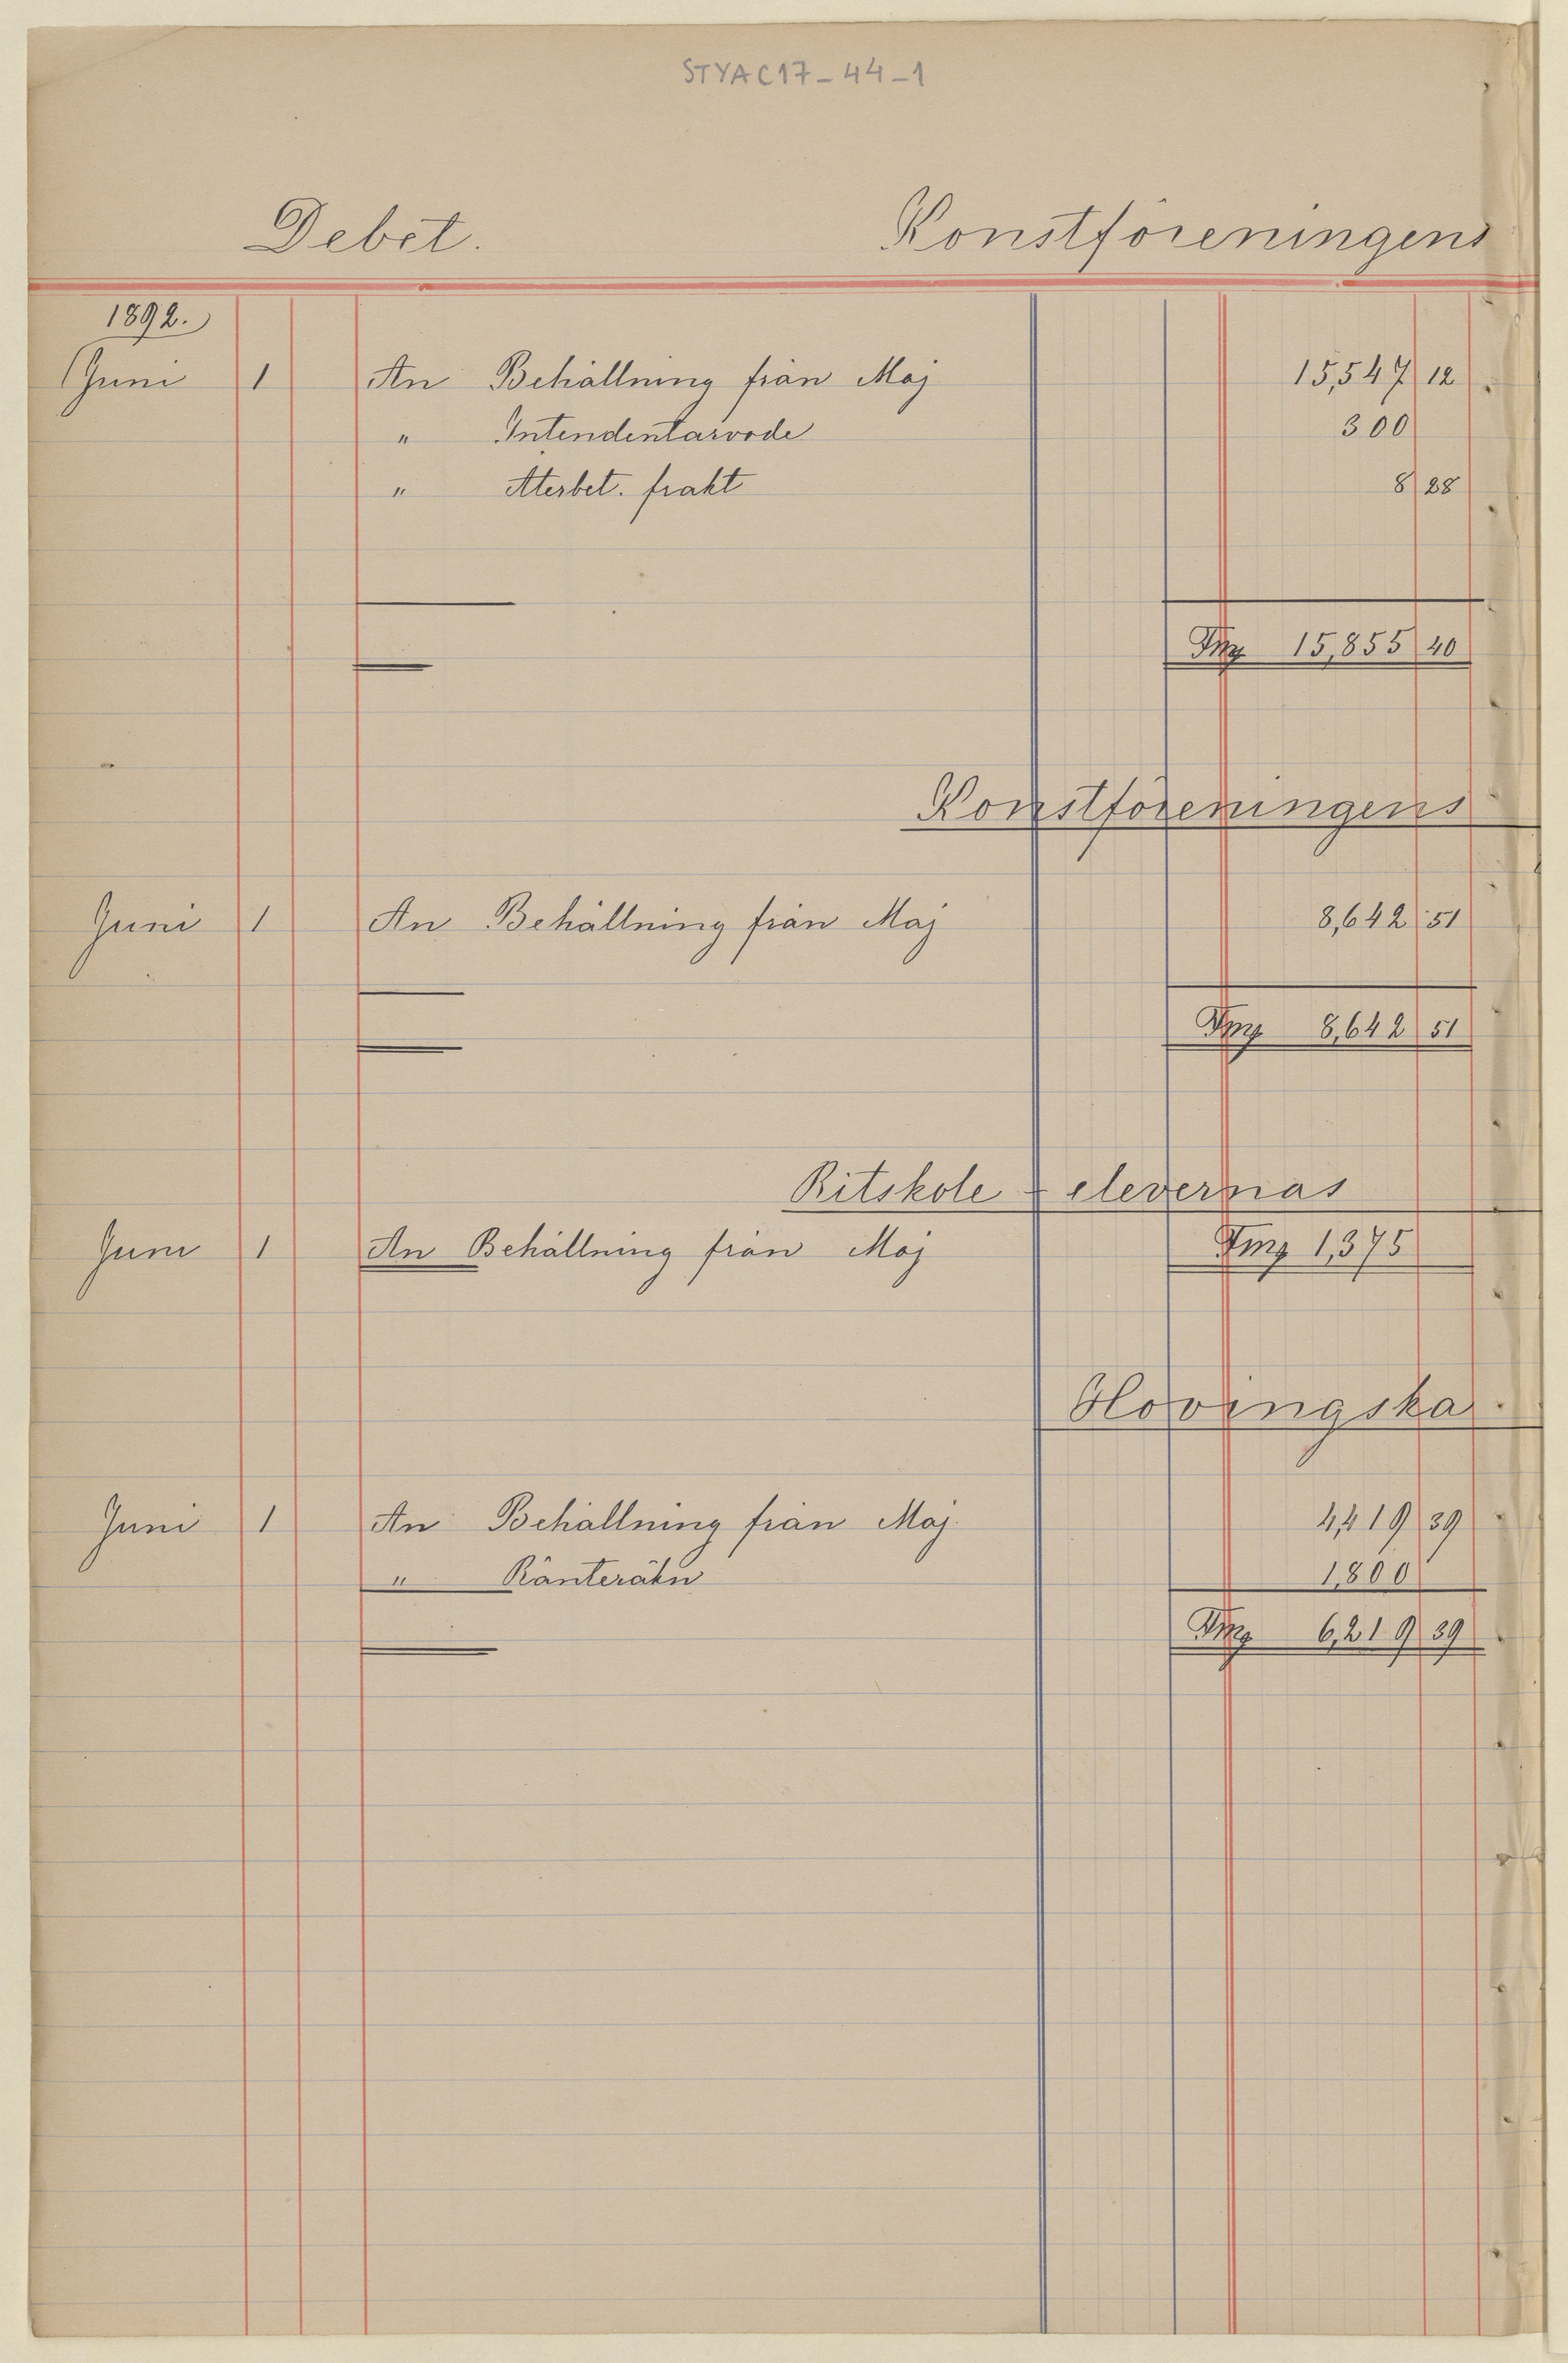 STYAC17-44-1
Debet. Konstföreningens
1892.
Juni 1 An Behållning från Maj 15,547 12
" Intendentarvode 300
" Återbet. frakt 8 28
Fmg 15,855 40
Konstföreningens
Juni 1 An Behållning från Maj 8,642 51
Fmg 8,642 51
Ritskole - elevernas
Juni 1 An Behållning från Maj Fmg 1,375
Hovingska
Juni 1 An Behållning från Maj 4,419 39
" Ränteräkn 1,800
Fmg 6,219 39